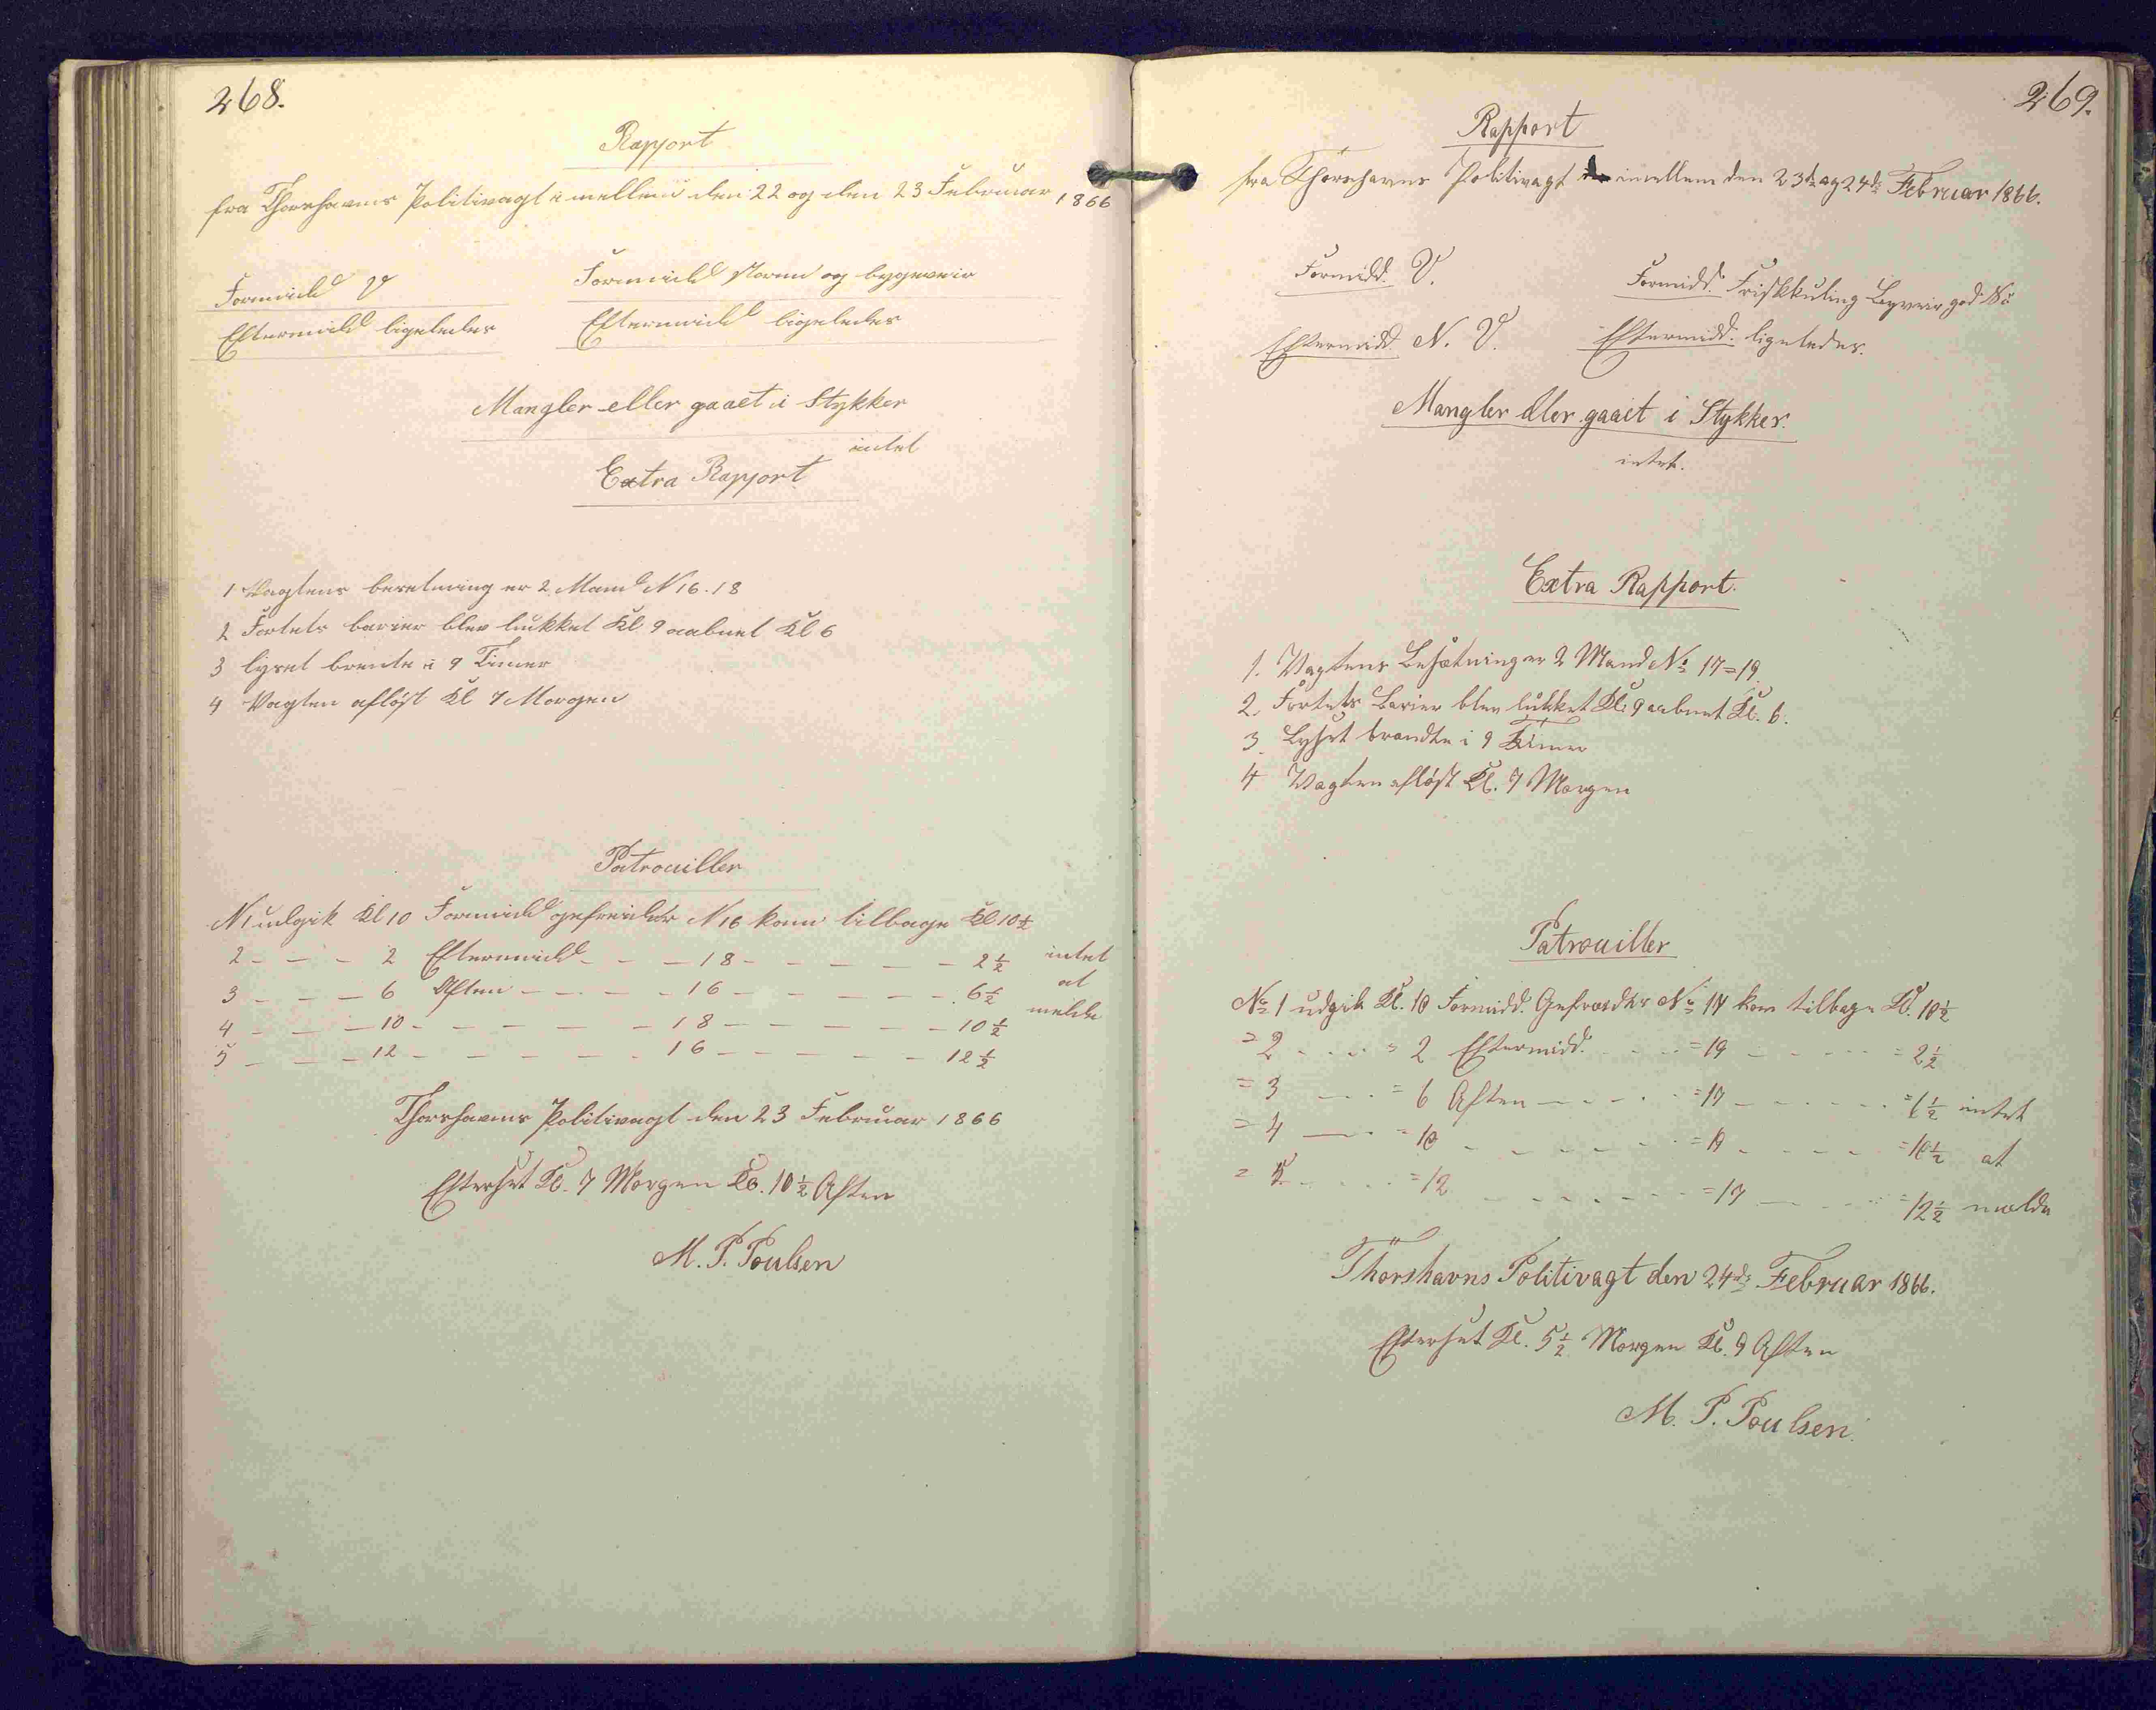 268.
Rapport
fra Thorshavns Politivagt imellem den 22 og den 23 Februar 1866
Formidd V
Formidd storm og bygeveir
Eftermidd ligeledes
Eftermidd ligeledes
Mangler eller gaaet i Stykker
intet
Extra Rapport
1 Vagtens besetning er 2 Mand N 16. 18
2 Fortets barier blev lukket Kl 9 aabnet Kl 6
3 lyset brente i 9 Timer
4 Vagten afløst Kl 7 Morgen
Patrouiller
N 1 udgik Kl 10 Formidd gefreider N 16 kom tilbage Kl 10 1/2
2 - - - 2 Eftermidd - - - 18 - - - - - 2 1/2 intet
3 - - - 6 Aften - - - - 16 - - - - - 6 1/2 at
4 - - - 10 - - - - - - 18 - - - - - 10 1/2 melde
5 - - - 12 - - - - - - 16 - - - - - 12 1/2
Thorshavns Politivagt den 23 Februar 1866
Efterset Kl. 7 Morgen Kl. 10 1/2 Aften
M. P. Poulsen
269.
Rapport
fra Thorshavns Politivagt imellem den 23de og 24de Februar 1866.
Formidd. V.
Formidd. Friskkuling Byveir god
Eftermidd. N. V.
Eftermidd. ligeledes.
Mangler eller gaaet i Stykker.
intet.
Extra Rapport.
1. Vagtens Besætning er 2 Mand No 17=19.
2. Fortets Barier blev lukket Kl. 9 aabnet Kl. 6.
3. Lyset brændte i 9 Timer
4 Vagten afløst Kl. 7 Morgen
Patrouiller
No 1 udgik Kl. 10 Formidd. Gefreider No 17 kom tilbage Kl. 10 1/2
= 2 - - - = 2 Eftermidd. - - - = 19 - - - - = 2 1/2
= 3 - - - = 6 Aften - - - - = 17 - - - - = 6 1/2 intet
= 4 - - - = 10 - - - - - = 19 - - - - = 10 1/2 at
= 5 - - - = 12 - - - - - = 17 - - - - = 12 1/2 melde
Thorshavns Politivagt den 24de Februar 1866.
Efterset Kl. 5 1/2 Morgen Kl. 9 Aften
M. P. Poulsen.